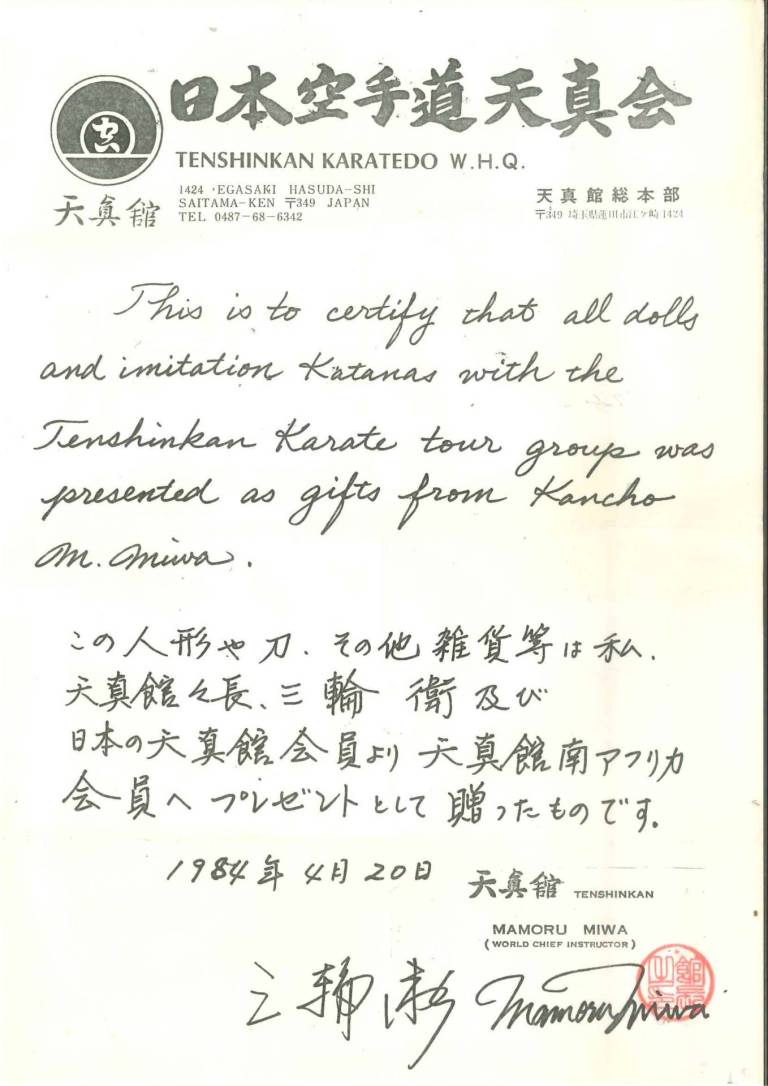 日本空手道天真会
TENSHINKAN KARATEDO W.H.Q.
天真館
1424 EGASAKI HASUDA-SHI
SAITAMA-KEN 〒349 JAPAN
TEL 0487-68-6342
天真館総本部
〒349 埼玉県蓮田市江ヶ崎1424
This is to certify that all dolls
and imitation Katanas with the
Tenshinkan Karate tour group was
presented as gifts from Kancho
M. Miwa.
この人形や刀、その他雑貨等は私、
天真館々長、三輪 衛及び
日本の天真館会員より天真館南アフリカ
会員へプレゼントとして贈ったものです。
1984年4月20日
天真館 TENSHINKAN
MAMORU MIWA
(WORLD CHIEF INSTRUCTOR)
三輪 Mamoru Miwa